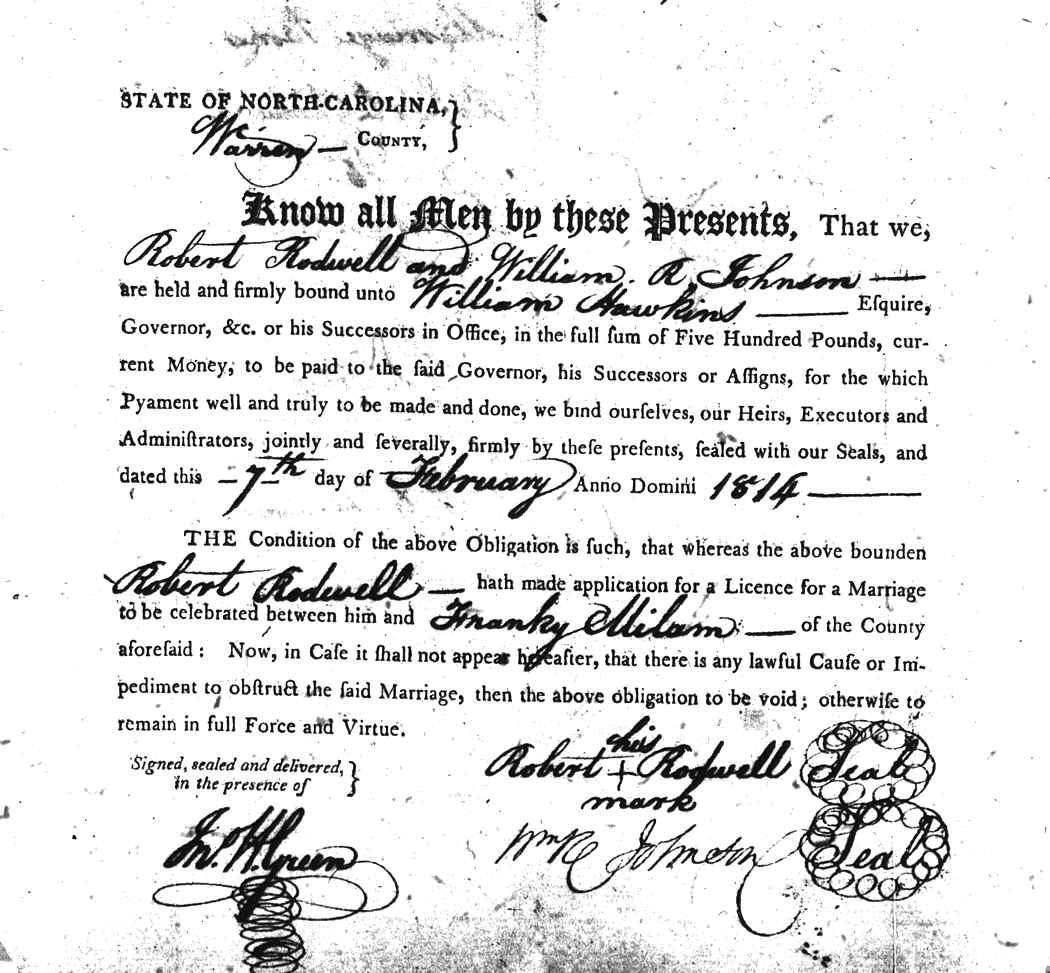 STATE OF NORTH-CAROLINA,
Warren — COUNTY,
Know all Men by these Presents, That we,
Robert Rodwell and William. R. Johnson —
are held and firmly bound unto William Hawkins — Eſquire,
Governor, &c. or his Successors in Office, in the full ſum of Five Hundred Pounds, cur-
rent Money, to be paid to the ſaid Governor, his Successors or Aſſigns, for the which
Pyament well and truly to be made and done, we bind ourſelves, our Heirs, Executors and
Adminiſtrators, jointly and ſeverally, firmly by theſe preſents, ſealed with our Seals, and
dated this – 7th day of February Anno Domini 1814 —
THE Condition of the above Obligation is ſuch, that whereas the above bounden
Robert Rodwell — hath made application for a Licence for a Marriage
to be celebrated between him and Franky Milam — of the County
aforeſaid: Now, in Caſe it ſhall not appear hereafter, that there is any lawful Cauſe or Im-
pediment to obſtruct the ſaid Marriage, then the above obligation to be void; otherwiſe to
remain in full Force and Virtue.
his
Signed, sealed and delivered, Robert + Rodwell Seal
in the presence of mark
Jno. W. Green Wm R Johnson Seal